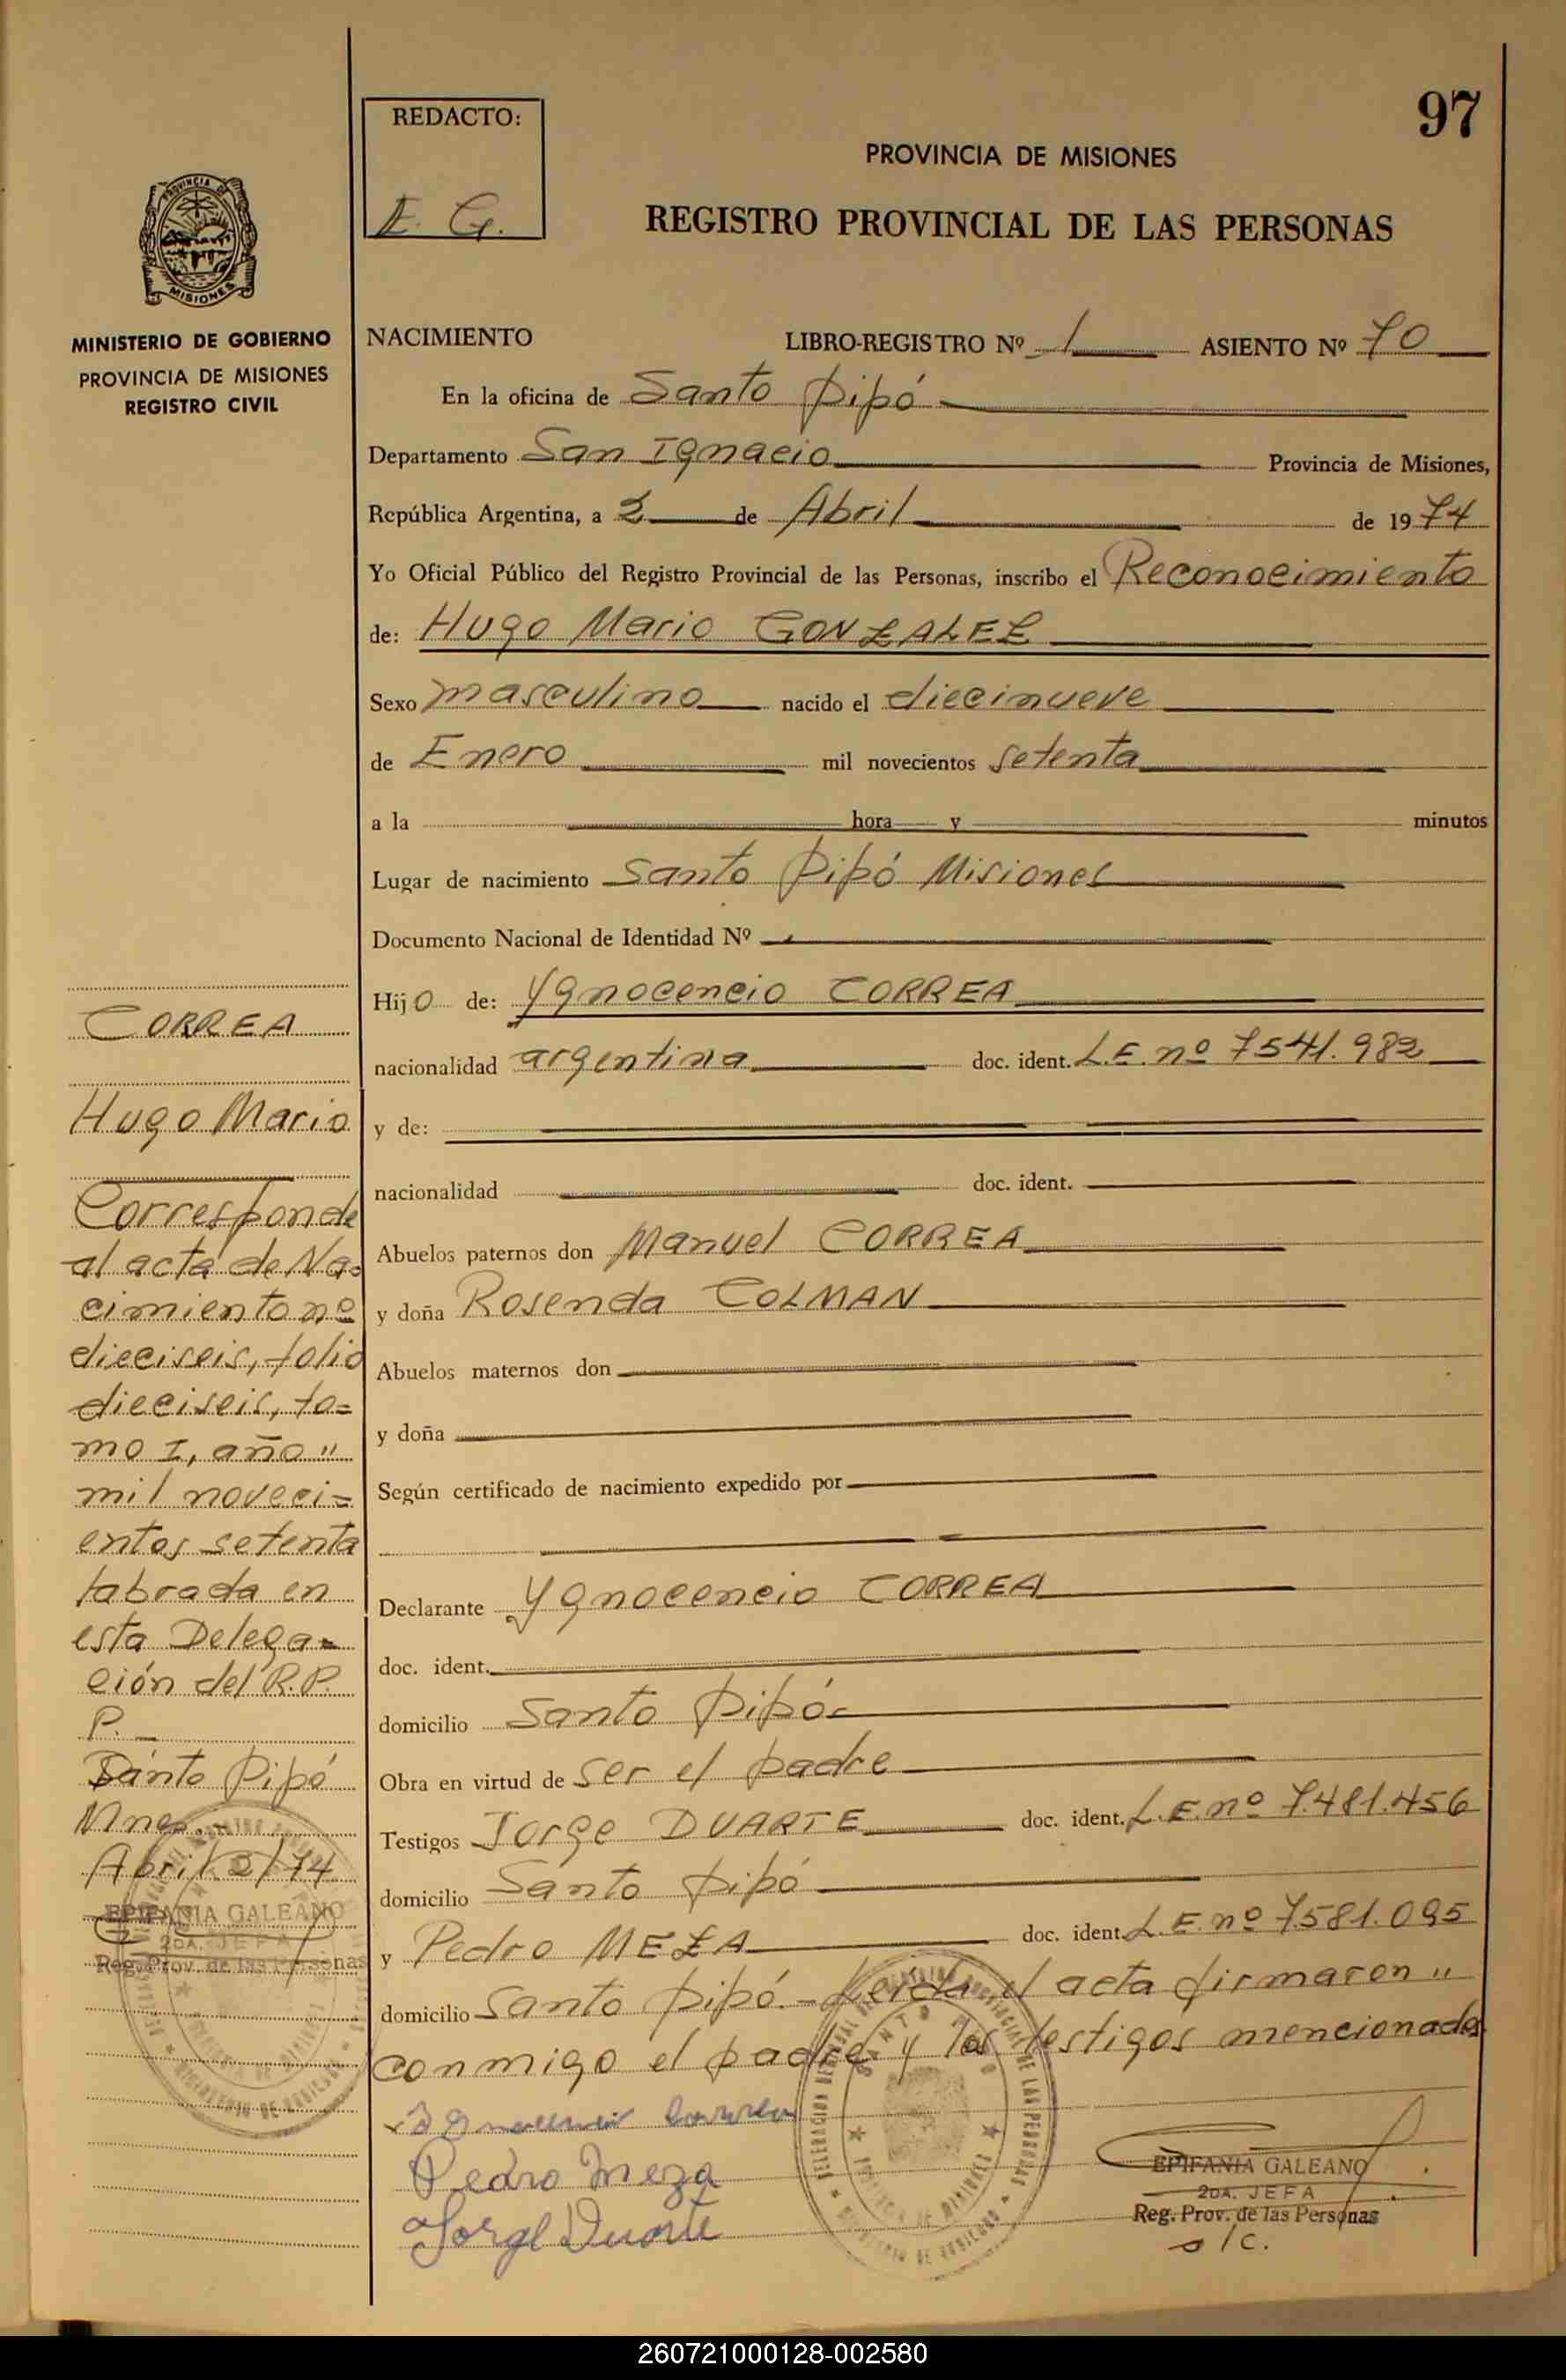 97
REDACTO:
E. G.
PROVINCIA DE MISIONES
REGISTRO PROVINCIAL DE LAS PERSONAS
PROVINCIA DE
MISIONES
MINISTERIO DE GOBIERNO
PROVINCIA DE MISIONES
REGISTRO CIVIL
NACIMIENTO LIBRO-REGISTRO Nº 1 ASIENTO Nº 70
En la oficina de Santo Pipó
Departamento San Ignacio Provincia de Misiones,
República Argentina, a 2 de Abril de 1974
Yo Oficial Público del Registro Provincial de las Personas, inscribo el Reconocimiento
de: Hugo Mario GONZALEZ
Sexo masculino nacido el diecinueve
de Enero mil novecientos setenta
a la hora y minutos
Lugar de nacimiento Santo Pipó Misiones
Documento Nacional de Identidad Nº
Hijo de: Ygnocencio CORREA
nacionalidad argentina doc. ident. L.E. nº 7541.982
y de:
nacionalidad doc. ident.
Abuelos paternos don Manuel CORREA
y doña Rosenda COLMAN
Abuelos maternos don
y doña
Según certificado de nacimiento expedido por
Declarante Ygnocencio CORREA
doc. ident.
domicilio Santo Pipó-
Obra en virtud de ser el padre
Testigos Jorge DUARTE doc. ident. L.E. nº 7.481.456
domicilio Santo Pipó
y Pedro MEZA doc. ident. L.E. nº 7581.095
domicilio Santo Pipó.- Leída el acta firmaron "
conmigo el padre y los testigos mencionados
Correa
Pedro Meza
Jorge Duarte
EPIFANIA GALEANO
2DA. JEFA
Reg. Prov. de las Personas
a/c.
CORREA
Hugo Mario
Corresponde
al acta de Na=
cimiento nº
dieciseis, folio
dieciseis, to=
mo I, año "
mil noveci=
entos setenta
labrada en
esta Delega=
ción del R.P.
P.
Santo Pipó
Mnes.-
Abril 2/74
EPIFANIA GALEANO
2DA. JEFA
Reg. Prov. de las Personas
260721000128-002580